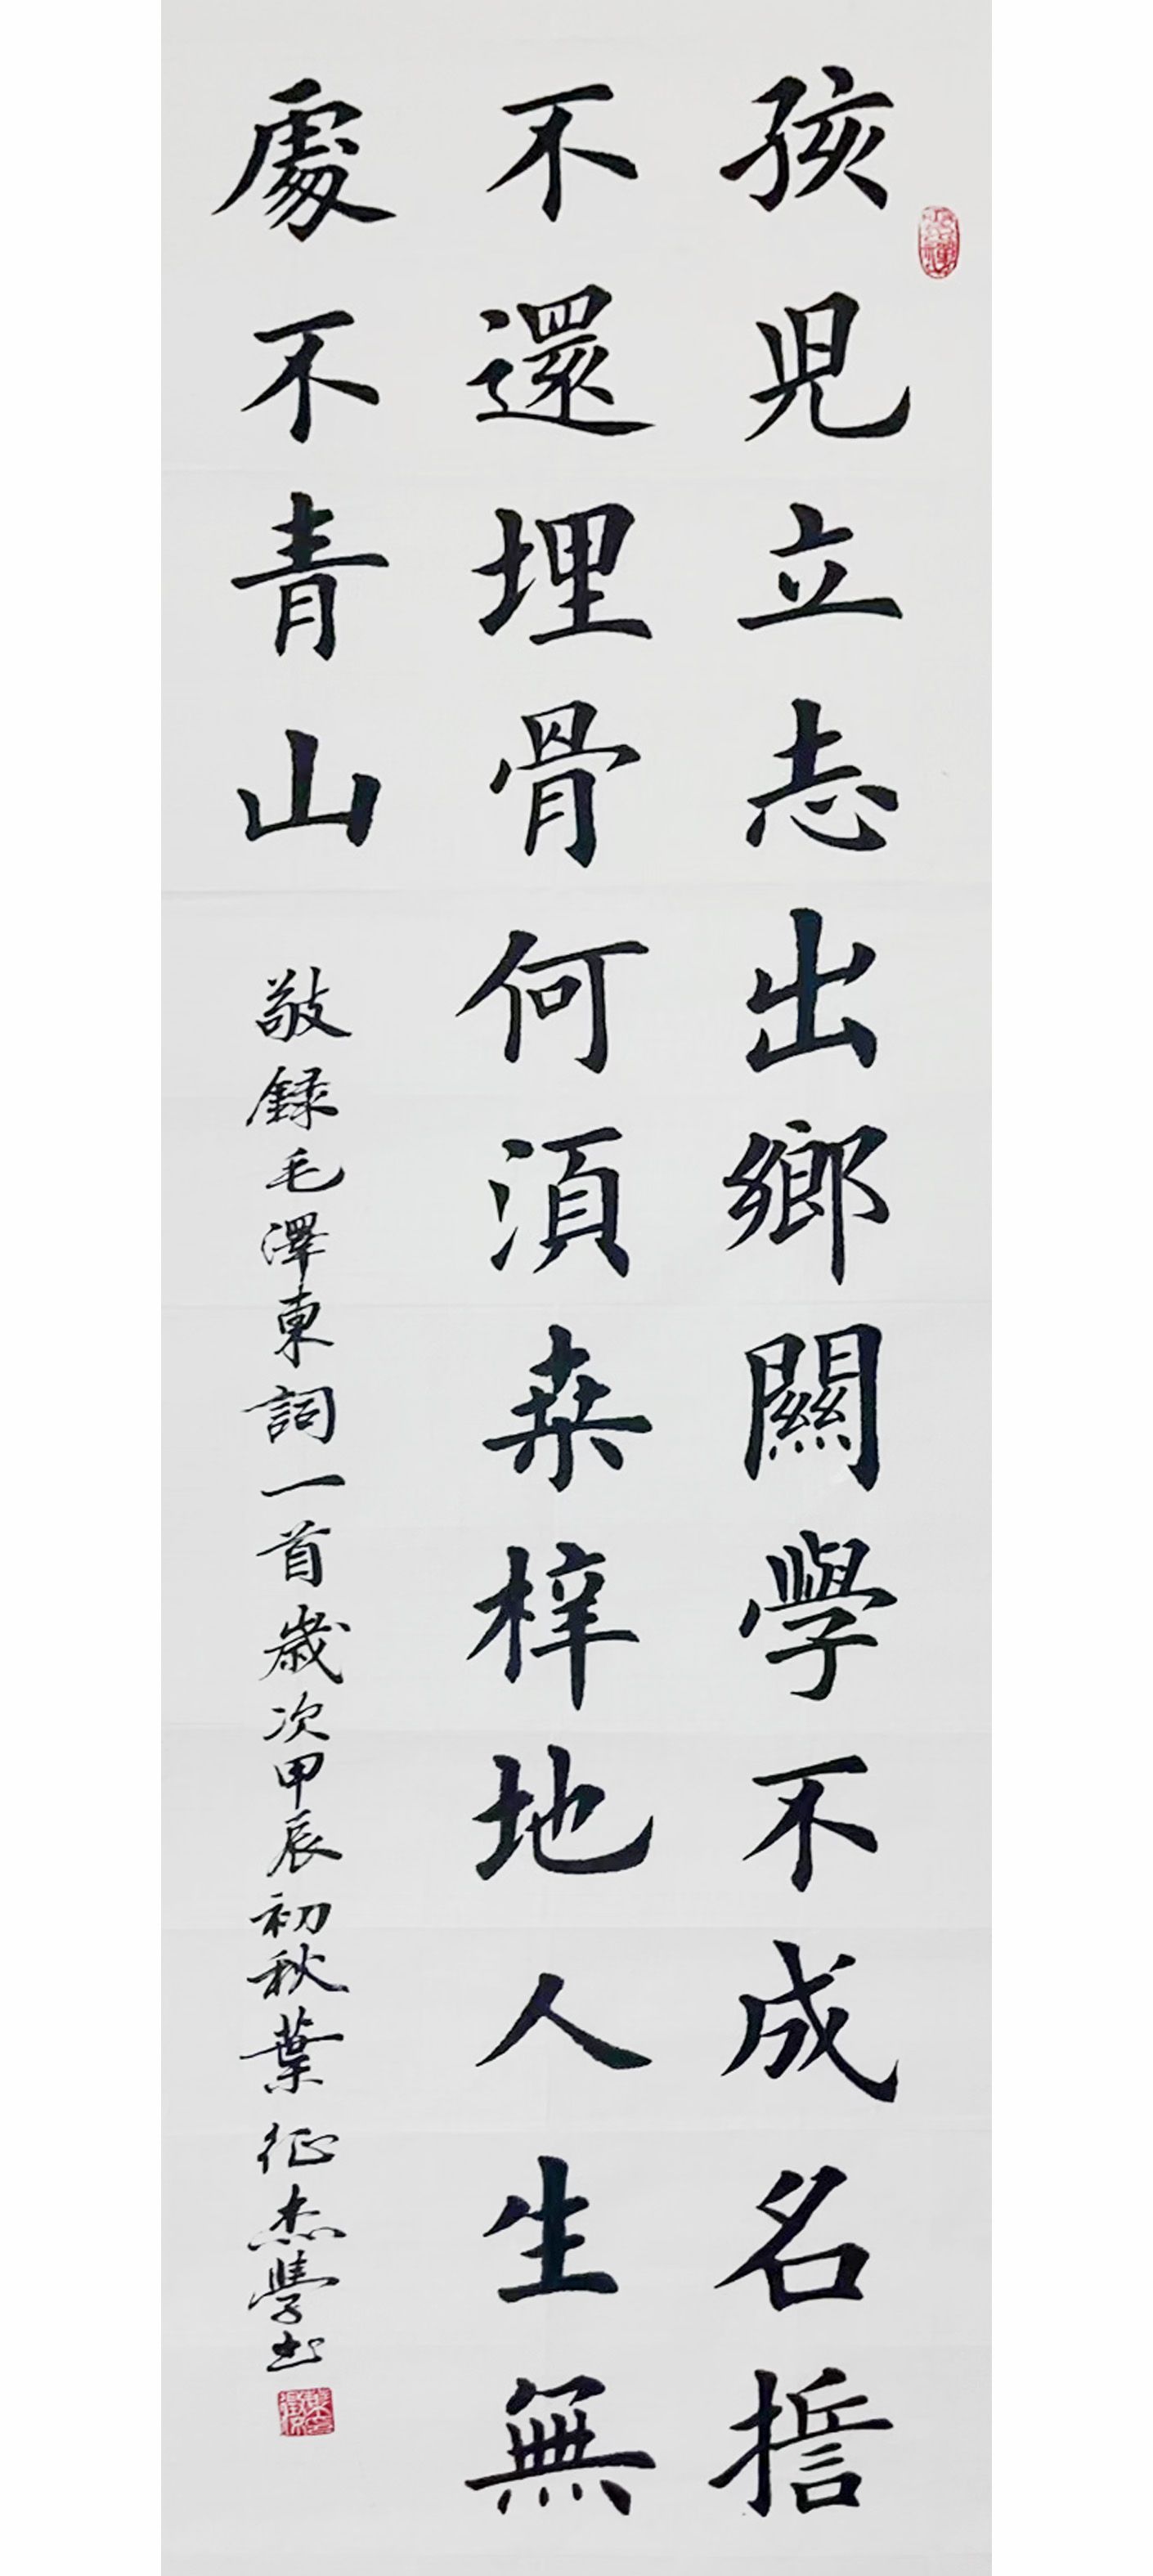 孩兒立志出鄉關學不成名誓
不還埋骨何須桒梓地人生無
處不青山
敬録毛澤東詞一首歲次甲辰初秋葉征杰學书